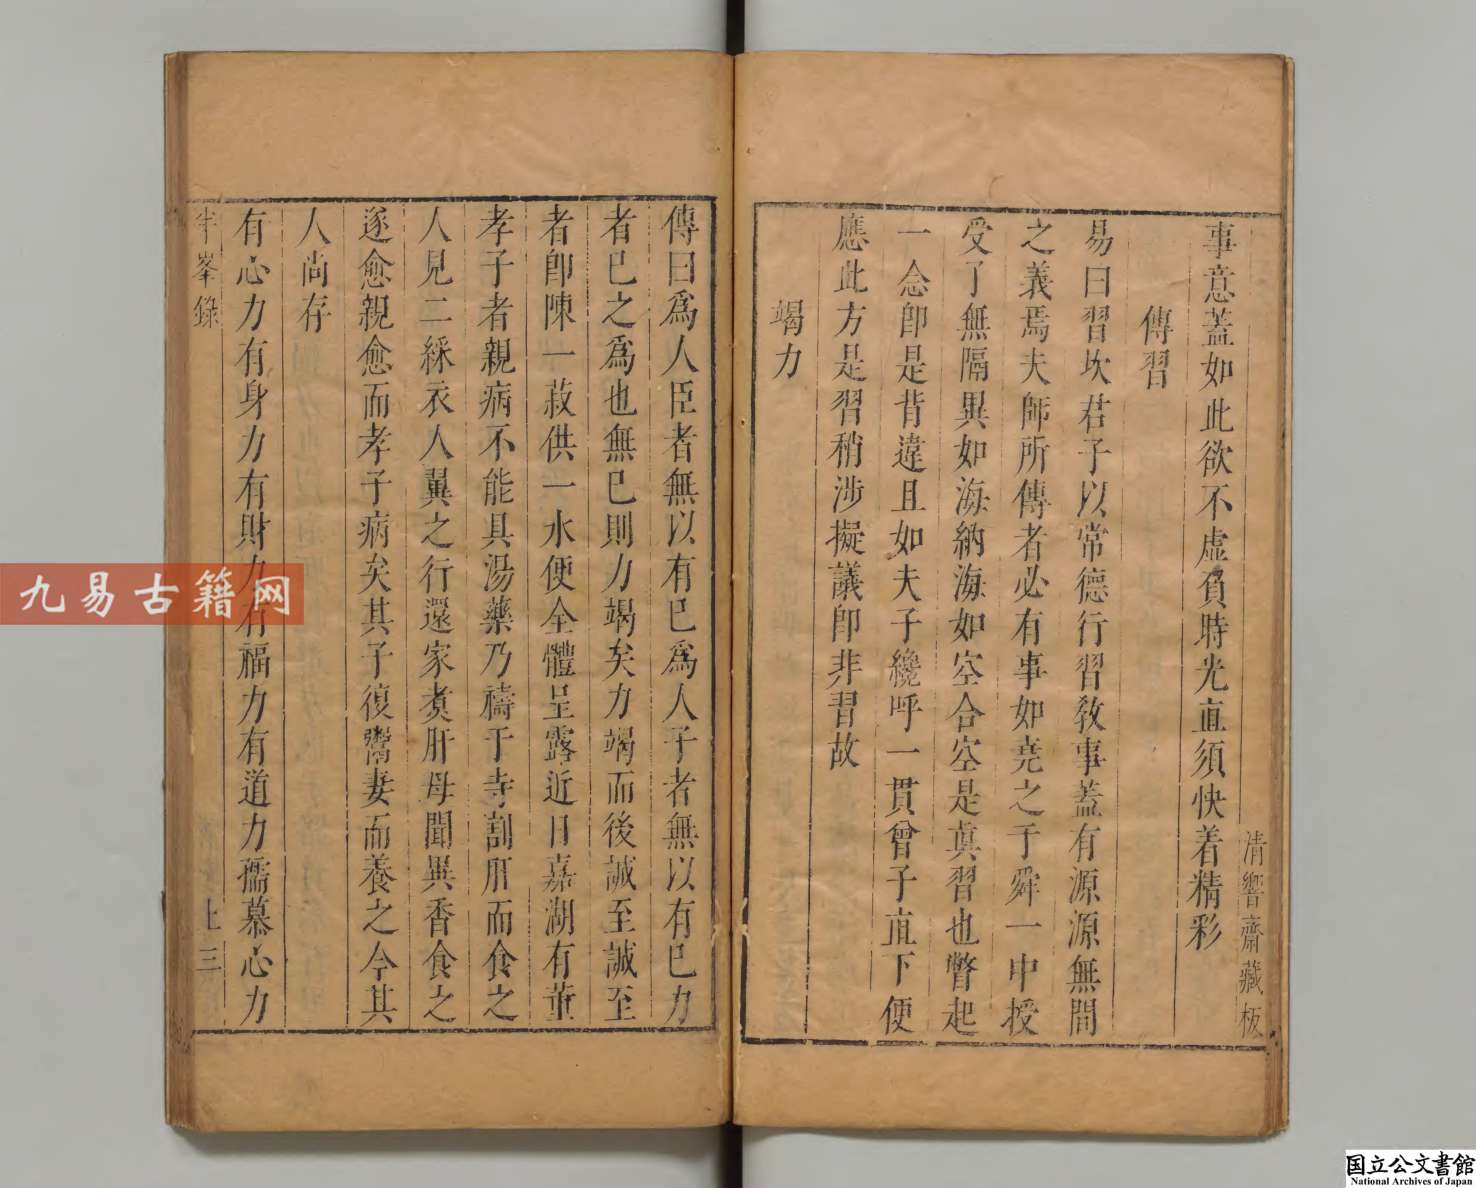 事意蓋如此欲不虛負時光直須快着精彩
傳習
易曰習坎君子以常德行習敎事蓋有源源無間
之義焉夫師所傳者必有事如堯之于舜一中授
受了無隔異如海納海如空合空是眞習也瞥起
一念卽是背違且如夫子纔呼一貫曾子直下便
應此方是習稍涉擬議卽非習故
竭力
清響齋藏板
傳曰爲人臣者無以有已爲人子者無以有已力
者已之爲也無已則力竭矣力竭而後誠至誠至
者卽陳一菽供一水便全體呈露近日嘉湖有董
孝子者親病不能具湯藥乃禱于寺割肝而食之
人見二綵衣人翼之行還家煑肝母聞異香食之
遂愈親愈而孝子病矣其子復鬻妻而養之今其
人尚存
有心力有身力有財力有福力有道力孺慕心力
半峯錄
上三
九易古籍网
国立公文書館
National Archives of Japan